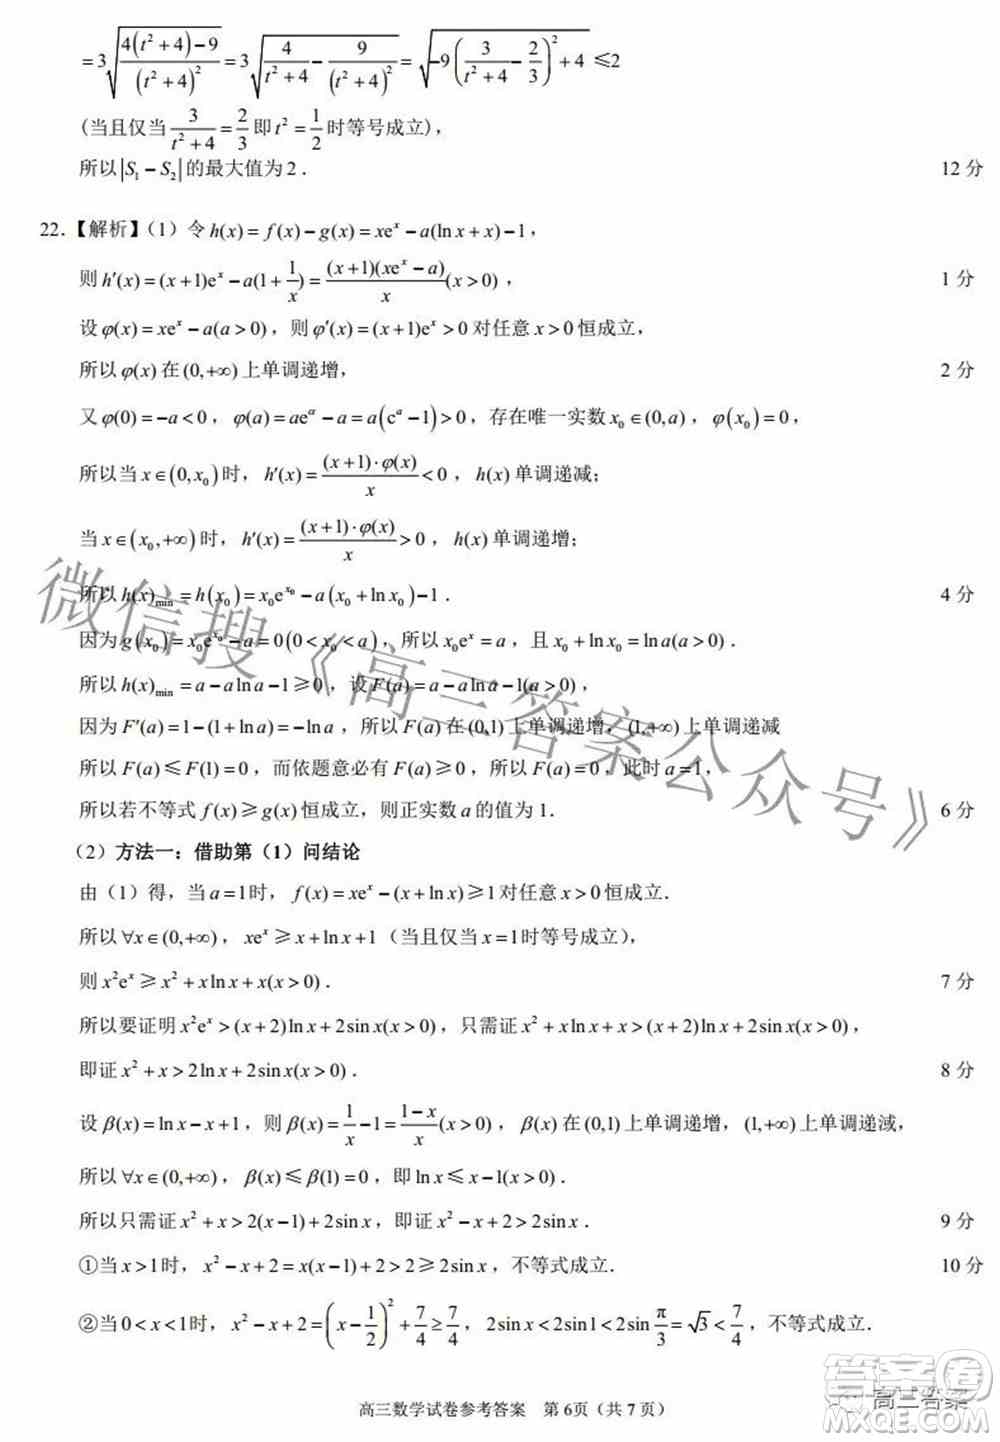 =3√(4(t²+4)−9)/(t²+4)² =3√4/(t²+4) − 9/(t²+4)² =√−9(3/(t²+4) − 2/3)²+4 ≤2
(当且仅当 3/(t²+4) = 2/3 即 t² = 1/2 时等号成立)，
所以|S₁−S₂|的最大值为2． 12分
22.【解析】(1) 令h(x)=f(x)−g(x)=xeˣ−a(ln x+x)−1，
则h′(x)=(x+1)eˣ−a(1+1/x)=(x+1)(xeˣ−a)/x (x>0)， 1分
设φ(x)=xeˣ−a(a>0)，则φ′(x)=(x+1)eˣ>0对任意x>0恒成立，
所以φ(x)在(0,+∞)上单调递增， 2分
又φ(0)=−a<0，φ(a)=aeᵃ−a=a(eᵃ−1)>0，存在唯一实数x₀∈(0,a)，φ(x₀)=0，
所以当x∈(0,x₀)时，h′(x)=(x+1)·φ(x)/x<0，h(x)单调递减；
当x∈(x₀,+∞)时，h′(x)=(x+1)·φ(x)/x>0，h(x)单调递增；
所以h(x)min=h(x₀)=x₀eˣ⁰−a(x₀+ln x₀)−1． 4分
因为g(x₀)=x₀eˣ⁰−a=0(0<x₀<a)，所以x₀eˣ=a，且x₀+ln x₀=ln a(a>0)．
所以h(x)min=a−a ln a−1≥0，设F(a)=a−a ln a−1(a>0)，
因为F′(a)=1−(1+ln a)=−ln a，所以F(a)在(0,1)上单调递增，(1,+∞)上单调递减
所以F(a)≤F(1)=0，而依题意必有F(a)≥0，所以F(a)=0，此时a=1，
所以若不等式f(x)≥g(x)恒成立，则正实数a的值为1． 6分
(2) 方法一：借助第（1）问结论
由（1）得，当a=1时，f(x)=xeˣ−(x+ln x)≥1对任意x>0恒成立．
所以∀x∈(0,+∞)，xeˣ≥x+ln x+1（当且仅当x=1时等号成立），
则x²eˣ≥x²+x ln x+x(x>0)． 7分
所以要证明x²eˣ>(x+2)ln x+2sin x(x>0)，只需证x²+x ln x+x>(x+2)ln x+2sin x(x>0)，
即证x²+x>2ln x+2sin x(x>0)． 8分
设β(x)=ln x−x+1，则β(x)=1/x−1=(1−x)/x(x>0)，β(x)在(0,1)上单调递增，(1,+∞)上单调递减，
所以∀x∈(0,+∞)，β(x)≤β(1)=0，即ln x≤x−1(x>0)．
所以只需证x²+x>2(x−1)+2sin x，即证x²−x+2>2sin x． 9分
①当x>1时，x²−x+2=x(x−1)+2>2≥2sin x，不等式成立． 10分
②当0<x<1时，x²−x+2=(x−1/2)²+7/4≥7/4，2sin x<2sin1<2sin π/3=√3<7/4，不等式成立．
高三数学试卷参考答案 第6页（共7页）
微信搜《高三答案公众号》
答案圈
高三答案
MXQE.COM